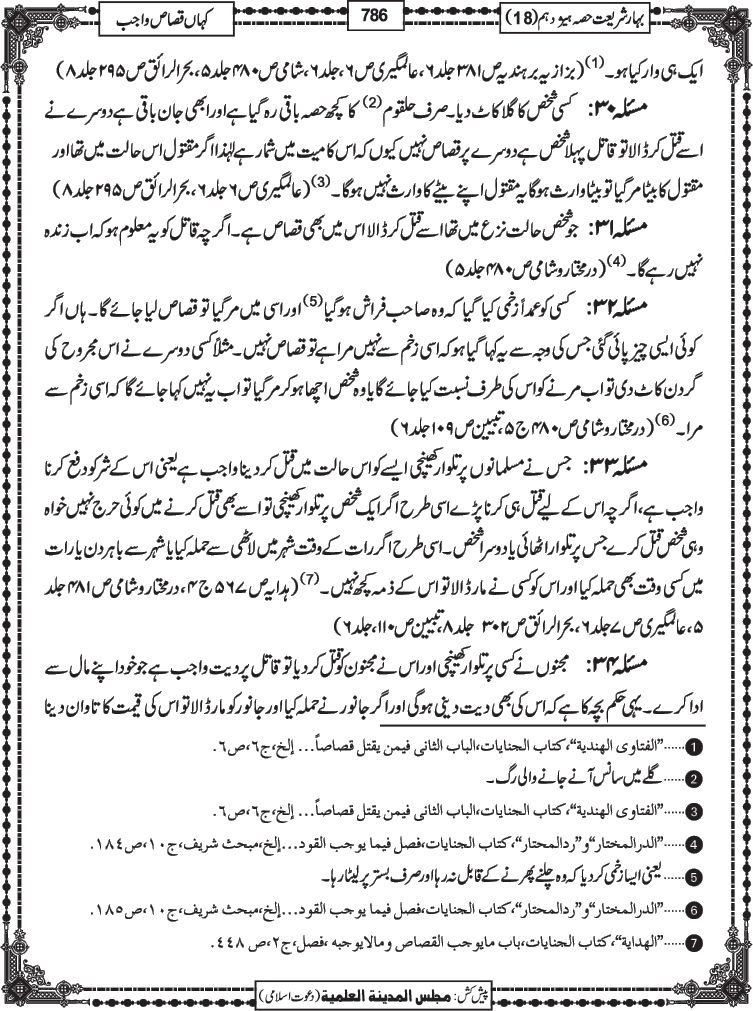 بہارِ شریعت حصہ ہیژدہم (18)
786
کہاں قصاص واجب
ایک ہی وار کیا ہو۔(1) (بزازیہ بر ہندیہ ص ۳۸۱ جلد ۶، عالمگیری ص ۶، جلد ۶، شامی ص ۴۸۰ جلد ۵، بحرالرائق ص ۲۹۵ جلد ۸)
مسئلہ ۳۰: کسی شخص کا گلا کاٹ دیا۔ صرف حلقوم(2) کا کچھ حصہ باقی رہ گیا ہے اور ابھی جان باقی ہے دوسرے نے
اسے قتل کر ڈالا تو قاتل پہلا شخص ہے دوسرے پر قصاص نہیں کیوں کہ اس کا میت میں شمار ہے لہٰذا اگر مقتول اس حالت میں تھا اور
مقتول کا بیٹا مر گیا تو بیٹا وارث ہوگا یہ مقتول اپنے بیٹے کا وارث نہیں ہوگا۔(3) (عالمگیری ص ۶ جلد ۶، بحرالرائق ص ۲۹۵ جلد ۸)
مسئلہ ۳۱: جو شخص حالت نزع میں تھا اسے قتل کر ڈالا اس میں بھی قصاص ہے۔ اگرچہ قاتل کو یہ معلوم ہو کہ اب زندہ
نہیں رہے گا۔(4) (درمختار و شامی ص ۴۸۰ جلد ۵)
مسئلہ ۳۲: کسی کو عمداً زخمی کیا گیا کہ وہ صاحب فراش ہوگیا(5) اور اسی میں مر گیا تو قصاص لیا جائے گا۔ ہاں اگر
کوئی ایسی چیز پائی گئی جس کی وجہ سے یہ کہا گیا ہو کہ اسی زخم سے نہیں مرا ہے تو قصاص نہیں۔ مثلاً کسی دوسرے نے اس مجروح کی
گردن کاٹ دی تو اب مرنے کو اس کی طرف نسبت کیا جائے گا یا وہ شخص اچھا ہو کر مر گیا تو اب یہ نہیں کہا جائے گا کہ اسی زخم سے
مرا۔(6) (درمختار و شامی ص ۴۸۰ ج ۵، تبیین ص ۱۰۹ جلد ۶)
مسئلہ ۳۳: جس نے مسلمانوں پر تلوار کھینچی ایسے کو اس حالت میں قتل کر دینا واجب ہے یعنی اس کے شر کو دفع کرنا
واجب ہے، اگرچہ اس کے لیے قتل ہی کرنا پڑے اسی طرح اگر ایک شخص پر تلوار کھینچی تو اسے بھی قتل کرنے میں کوئی حرج نہیں خواہ
وہی شخص قتل کرے جس پر تلوار اٹھائی یا دوسرا شخص۔ اسی طرح اگر رات کے وقت شہر میں لاٹھی سے حملہ کیا یا شہر سے باہر دن یا رات
میں کسی وقت بھی حملہ کیا اور اس کو کسی نے مار ڈالا تو اس کے ذمہ کچھ نہیں۔(7) (ہدایہ ص ۵۶۷ ج ۴، درمختار و شامی ص ۴۸۱ جلد
۵، عالمگیری ص ۷ جلد ۶، بحرالرائق ص ۳۰۲ جلد ۸، تبیین ص ۱۱۰، جلد ۶)
مسئلہ ۳۴: مجنوں نے کسی پر تلوار کھینچی اور اس نے مجنون کو قتل کر دیا تو قاتل پر دیت واجب ہے جو خود اپنے مال سے
ادا کرے۔ یہی حکم بچہ کا ہے کہ اس کی بھی دیت دینی ہوگی اور اگر جانور نے حملہ کیا اور جانور کو مار ڈالا تو اس کی قیمت کا تاوان دینا
1 ......"الفتاوی الھندیة"، کتاب الجنایات، الباب الثانی فیمن یقتل قصاصاً... إلخ، ج٦، ص٦.
2 ......گلے میں سانس آنے جانے والی رگ۔
3 ......"الفتاوی الھندیة"، کتاب الجنایات، الباب الثانی فیمن یقتل قصاصاً... إلخ، ج٦، ص٦.
4 ......"الدرالمختار" و "ردالمحتار"، کتاب الجنایات، فصل فیما یوجب القود...إلخ، مبحث شریف، ج١٠، ص١٨٤.
5 ......یعنی ایسا زخمی کر دیا کہ وہ چلنے پھرنے کے قابل نہ رہا اور صرف بستر پر لیٹا رہا۔
6 ......"الدرالمختار" و "ردالمحتار"، کتاب الجنایات، فصل فیما یوجب القود...إلخ، مبحث شریف، ج١٠، ص١٨٥.
7 ......"الھدایة"، کتاب الجنایات، باب مایوجب القصاص ومالایوجبه، فصل، ج٢، ص ٤٤٨.
پیش کش: مجلس المدینة العلمیة (دعوت اسلامی)